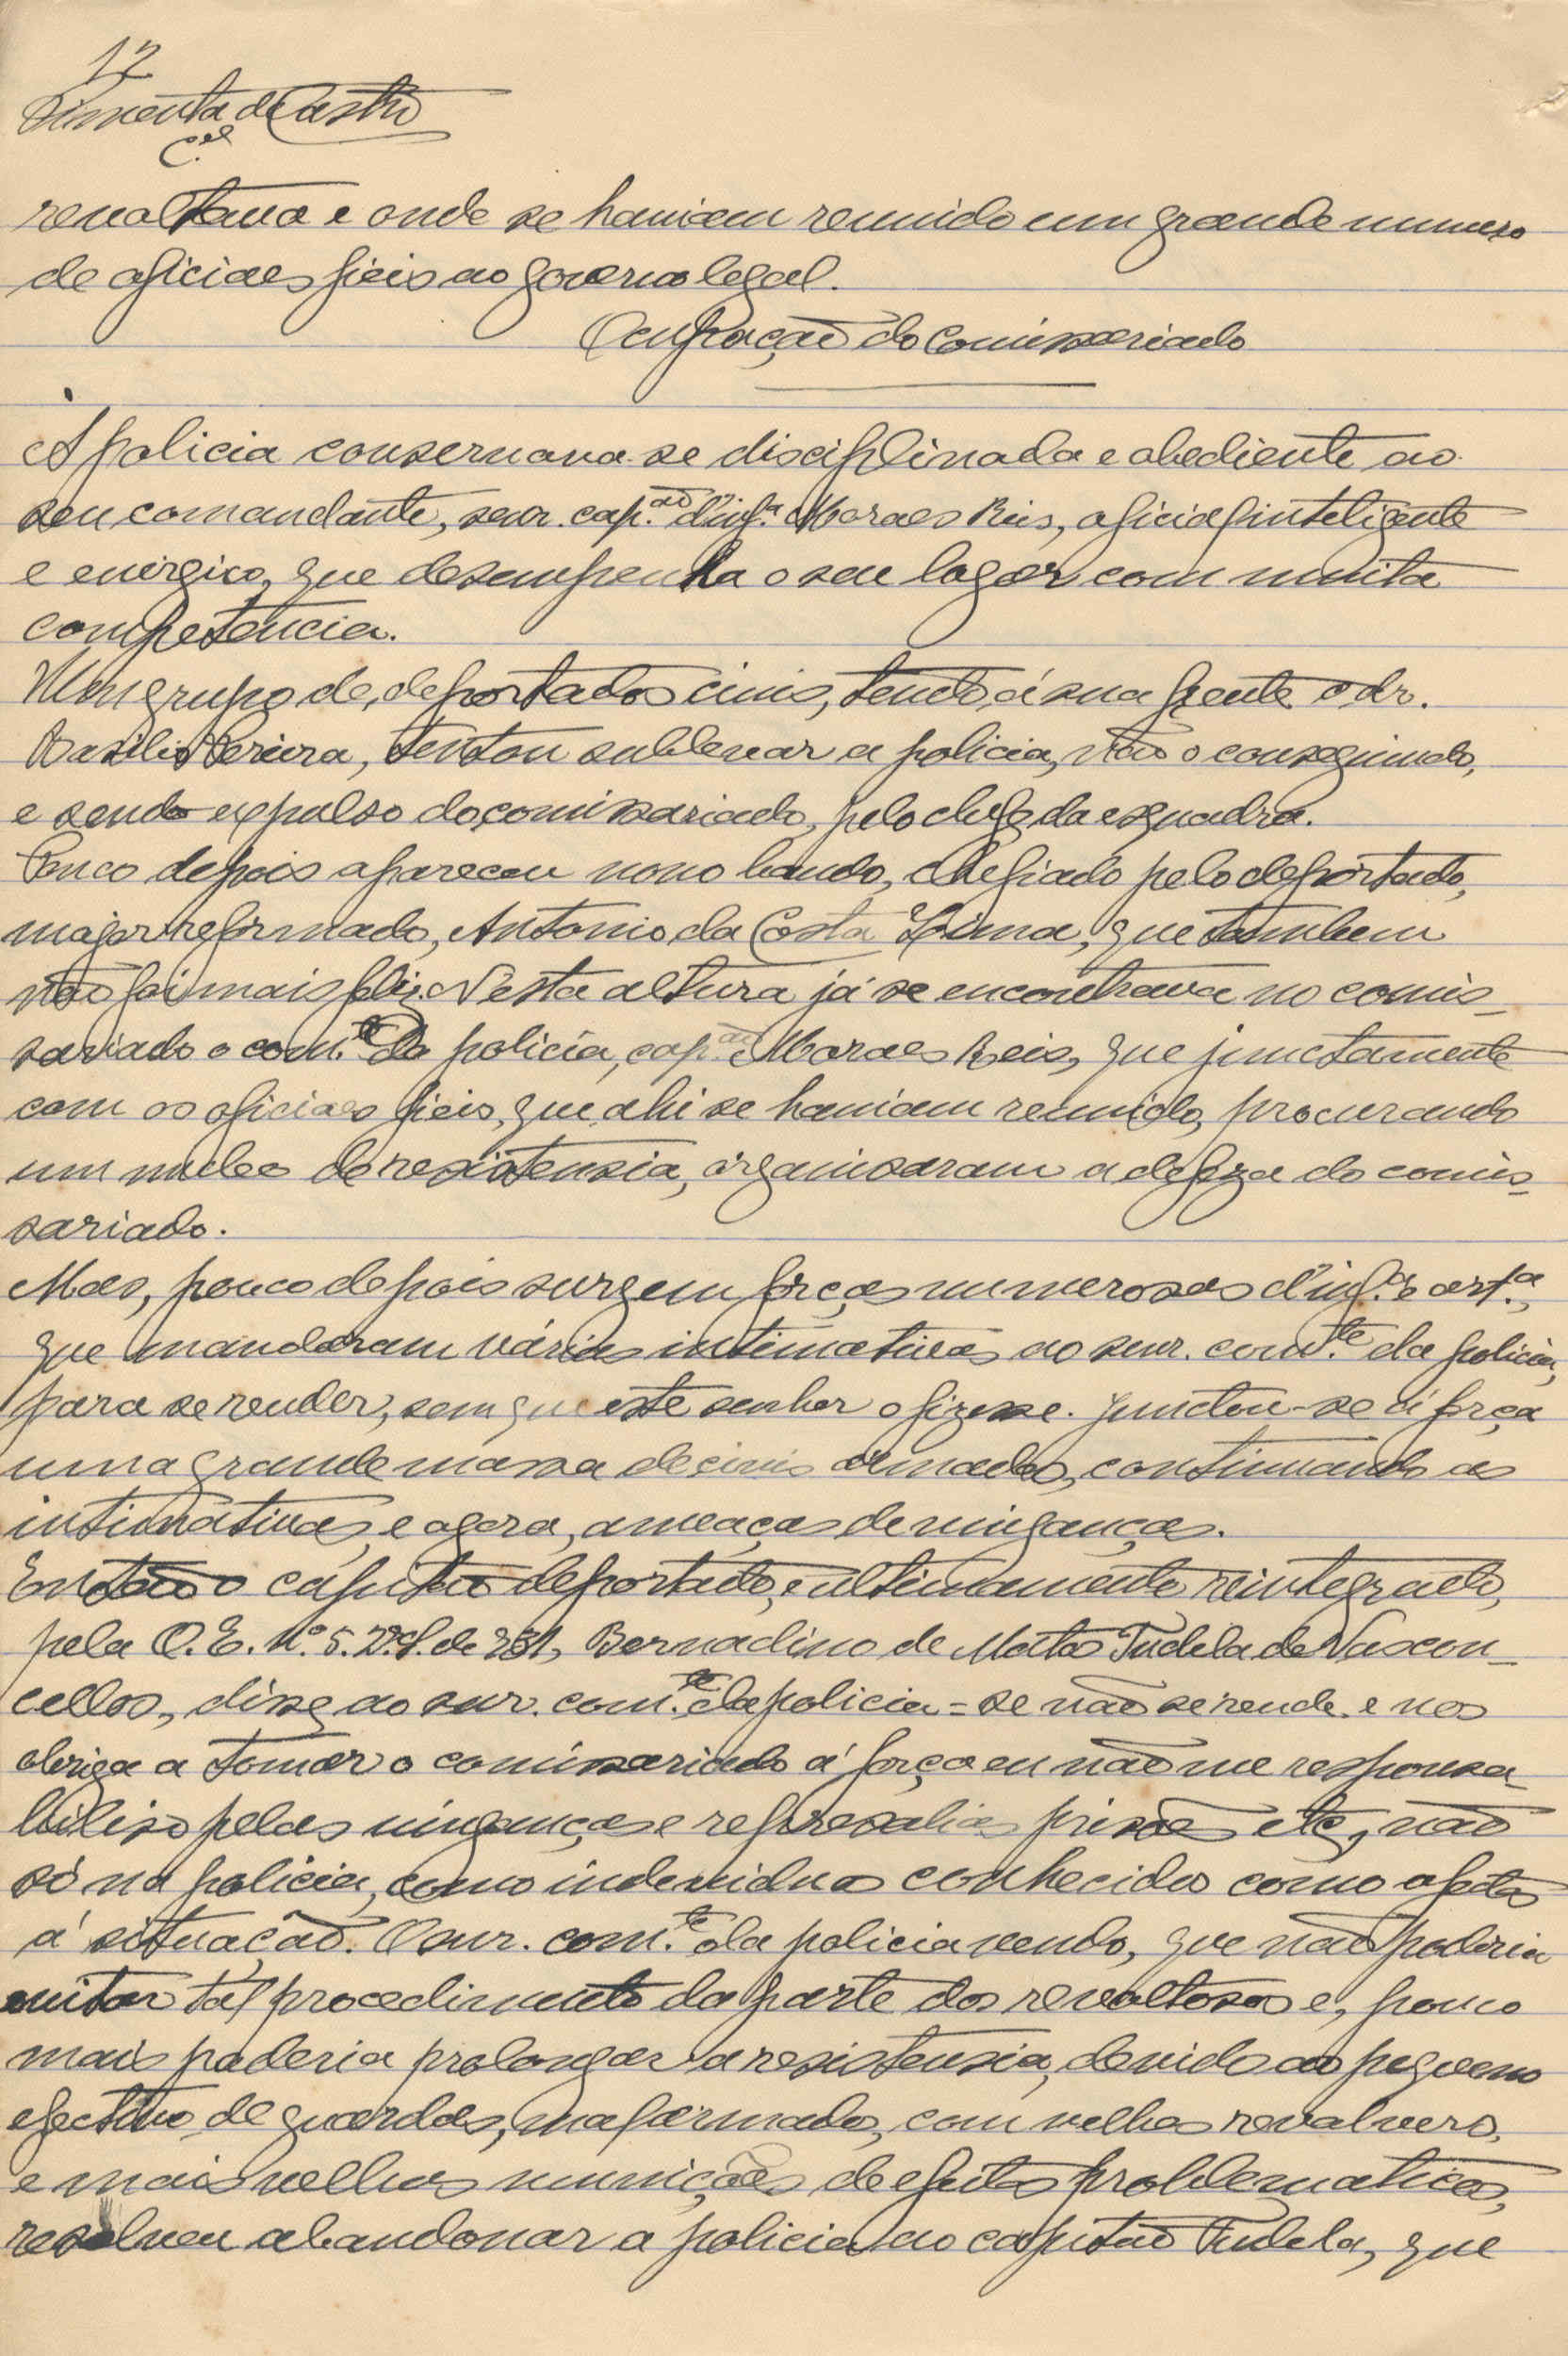 12
Pimenta de Castro
C.el
revoltava e onde se haviam reunido um grande numero
de oficiaes fieis ao governo legal.
Ocupação do Comissariado
A policia conservava-se disciplinada e obediente ao
seu comandante, senr. cap.ão d'inf.a Moraes Reis, oficial inteligente
e energico, que desempenha o seu logar com muita
competencia.
Um grupo de, deportados civis, tendo á sua frente o dr.
Basilio Pereira, tentou sublevar a policia, não o conseguindo,
e sendo expulso do comissariado, pelo chefe da esquadra.
Pouco depois apareceu novo bando, chefiado pelo deportado,
major reformado, Antonio da Costa Lima, que tambem
não foi mais feliz. Nesta altura já se encontrava no comis_
sariado o com.te da policia, cap.ão Moraes Reis, que junctamente
com os oficiaes fieis, que ahi se haviam reunido, procurando
um nucleo de resistensia, organisaram a defeza do comis_
sariado.
Mas, pouco depois surgem forças numerosas d'inf.a e art.a,
que mandaram várias intimativas ao senr. com.te da policia,
para se render, sem que este senhor o fizesse. Junctou-se á força
uma grande massa de civis armados, continuando as
intimativas, e agora, ameaças de vinganças.
Então o capitão deportado, e ultimamente reintegrado,
pela O. E. N.º 5. 2.ª S. de 931, Bernadino de Matos Tudela de Vascon_
cellos, disse ao snr. com.te da policia = se não se rende e nos
obriga a tomar o comissariado á força eu não me responsa_
biliso pelas vinganças e represalias prisões etc, não
só na policia, como individuos conhecidos como afectos
á situação. O snr. com.te da policia vendo, que não poderia
evitar tal procedimento da parte dos revoltosos e, pouco
mais poderia prolongar a resistensia, devido ao pequeno
efectivo de guardas, mal armados, com velhos revolvers,
e mais velhas munições de efeitos problematicos,
resolveu abandonar a policia ao capitão Tudela, que